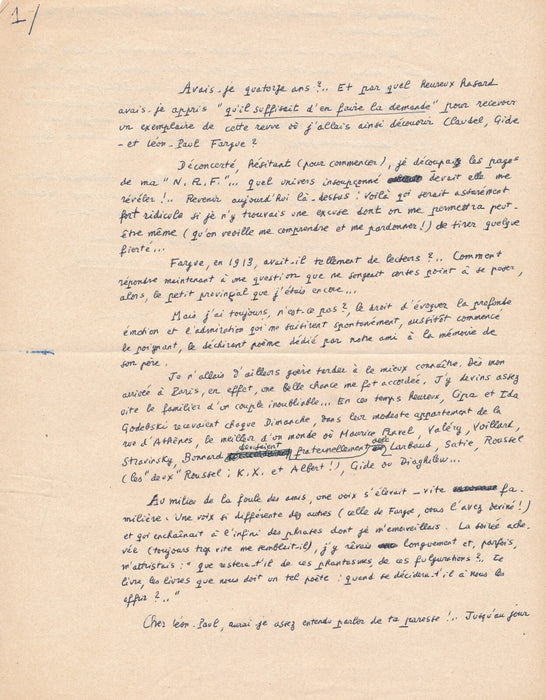 1/
Avais-je quatorze ans ?.. Et par quel heureux hasard
avais-je appris "qu'il suffisait d'en faire la demande" pour recevoir
un exemplaire de cette revue où j'allais ainsi découvrir Claudel, Gide
- et Léon-Paul Fargue ?
Déconcerté, hésitant (pour commencer), je découpais les pages
de ma "N.R.F."... quel univers insoupçonné devait elle me
révéler !.. Revenir aujourd'hui là-dessus : voilà qui serait assurément
fort ridicule si je n'y trouvais une excuse dont on me permettra peut-
être même (qu'on veuille me comprendre et me pardonner !) de tirer quelque
fierté...
Fargue, en 1913, avait-il tellement de lecteurs ?.. Comment
répondre maintenant à une question que ne songeait certes point à se poser,
alors, le petit provincial que j'étais encore...
Mais j'ai toujours, n'est-ce pas ?, le droit d'évoquer la profonde
émotion et l'admiration qui me saisirent spontanément, aussitôt commencé
le poignant, le déchirant poème dédié par notre ami à la mémoire de
son père.
Je n'allais d'ailleurs guère tarder à le mieux connaître. Dès mon
arrivée à Paris, en effet, une belle chance me fut accordée. J'y devins assez
vite le familier d'un couple inoubliable... En ces temps heureux, Cipa et Ida
Godebski recevaient chaque Dimanche, dans leur modeste appartement de la
rue d'Athènes, le meilleur d'un monde où Maurice Ravel, Valéry, Vollard,
Stravinsky, Bonnard fraternellement avec Larbaud, Satie, Roussel
(les "deux" Roussel : K.X. et Albert !), Gide ou Diaghilew...
Au milieu de la foule des amis, une voix s'élevait - vite fa-
milière. Une voix si différente des autres (celle de Fargue, vous l'avez deviné !)
et qui enchaînait à l'infini des phrases dont je m'émerveillais. La soirée ache-
vée (toujours trop vite me semblait-il), j'y rêvais longuement et, parfois,
m'attristais : "que restera-t'il de ces phantasmes, de ces fulgurations ?.. Le
livre, les livres que nous doit un tel poète : quand se décidera-t'il à nous les
offrir ?.."
Cher Léon-Paul, aurai-je assez entendu parler de ta paresse !.. Jusqu'au jour